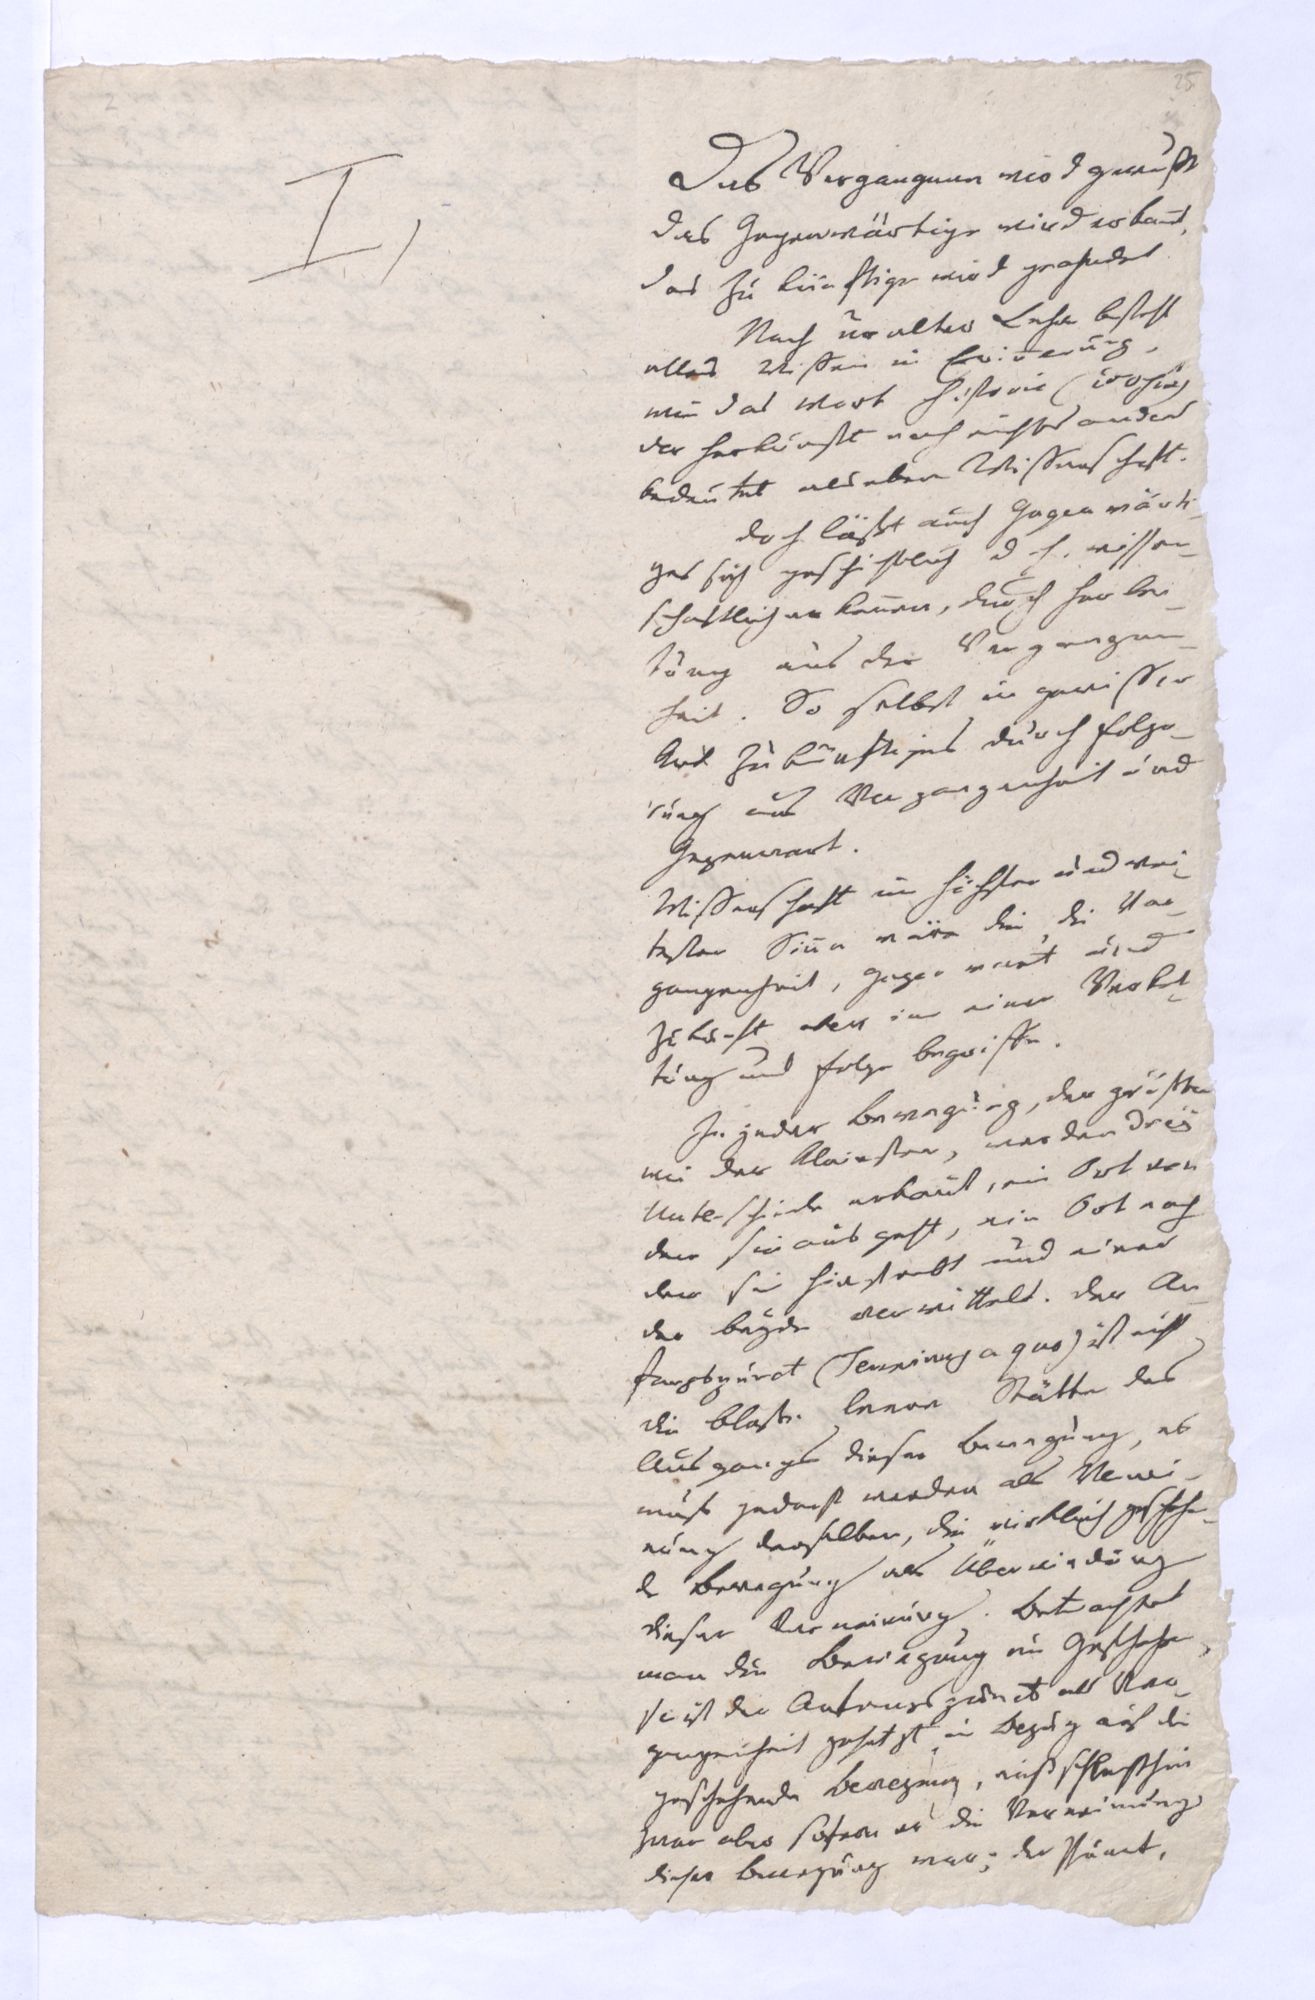 2
25
I,
Das Vergangene wird gewußt
das Gegenwärtige wird erkañt,
das Zukünftige wird geahndet
Nach uralter Lehre besteht
alles Wissen in Eriñerung,
wie das Wort Historie
der Herkunft nach nichts anders
bedeutet als eben Wissenschaft.
Doch läßt auch Gegenwärti-
ges sich geschichtlich d. h. wissen-
schaftlich erkeñen, durch Herlei-
tung aus der Vergangen-
heit. So selbst in gewisser
Art Zukünftiges durch Folge-
rung aus Vergangenheit und
Gegenwart.
Wissenschaft im höchsten und wei-
testen Siñ wäre die, die Ver-
gangenheit, Gegenwart und
Zukunft aber in einer Verket-
tung und Folge begriffe.
In jeder Bewegung, der größten
wie der kleinsten, werden drey
Unterschiede erkañt, ein Ort von
dem sie ausgeht, ein Ort nach
dem sie hinstrebt und einer
der beyde vermittelt. Der An-
fangspunct (Terminus a quo) ist nicht
die bloße leere Stätte des
Ausgangs dieser Bewegung, er
muß gedacht werden als Vernei-
nung derselben, die wirklich geschehen-
de Bewegung als Überwindung
dieser Verneinung. Betrachtet
man die Bewegung im Geschehen,
so ist der Anfangspunct als Ver-
gangenheit gesetzt in Bezug auf die
geschehende Bewegung, nicht schlechthin
zwar aber sofern er die Verneinung
dieser Bewegung war; der Punct,